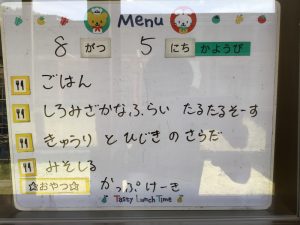 Menu
8 がつ 5 にち かようび
ごはん
しろみざかなふらい たるたるそーす
きゅうり と ひじき の さらだ
みそしる
☆おやつ☆ かっぷけーき
Tasty Lunch Time